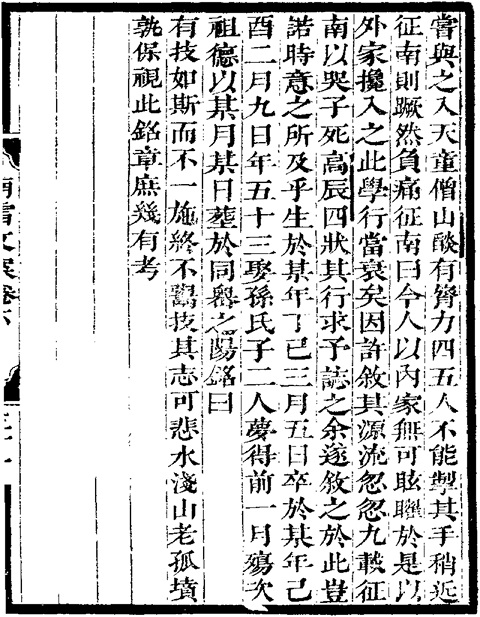 嘗與之入天童僧山燄有膂力四五人不能掣其手稍近
征南則蹶然負痛征南曰今人以內家無可眩曜於是以
外家攙入之此學行當衰矣因許敘其源流忽忽九載征
南以哭子死高辰四狀其行求予誌之余遂敘之於此豈
諾時意之所及乎生於某年丁巳三月五日卒於某年己
酉二月九日年五十三娶孫氏子二人夢得前一月殤次
祖德以某月某日塟於同嶴之陽銘曰
有技如斯而不一施終不鬻技其志可悲水淺山老孤墳
孰保視此銘章庶幾有考
南雷文案卷六